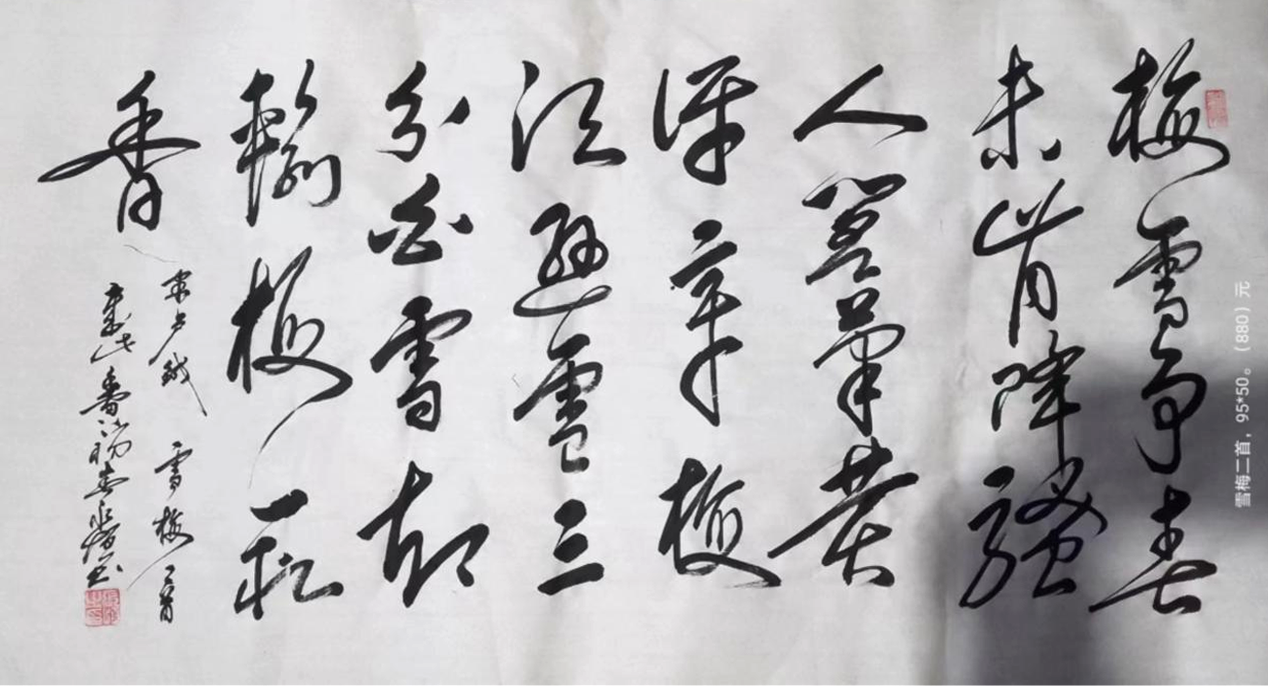 梅雪争春
未肯降骚
人阁笔费
评章梅
须逊雪三
分白雪却
输梅一段
香
宋卢钺 雪梅二首
雪梅二首，95*50。(880) 元